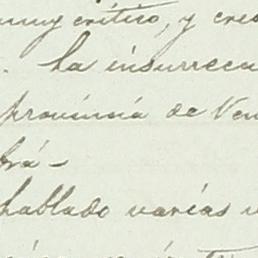 muy crítico, y cre
. La insurrecc
provincia de Ven
brá-
hablado varias v